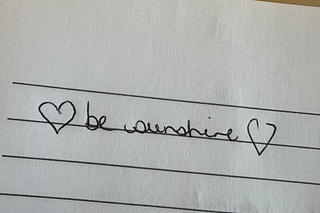 ♡ be sunshine ♡